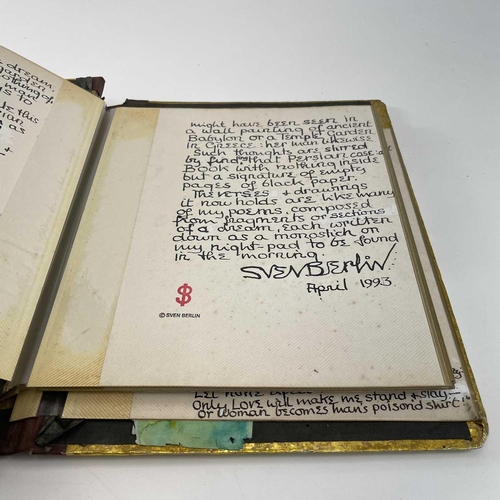 dream.
garden
nothing of
many
s to
de this
sian
as
+
might have been seen in
a wall painting of ancient
Babylon or a Temple Garden
in Greece: her man likewise
Such thoughts are stirred
by finding that Persian case: a
Book with nothing inside
but a signature of empty
pages of black paper.
The verses + drawings
it now holds are like many
of my poems composed
from fragments or sections
of a dream, each written
down as a monostich on
my night-pad to be found
in the morning.
SVEN BERLIN
April 1993
© SVEN BERLIN
Let none
Only Love will make me stand + slay—
or woman becomes man's poisond shirt."